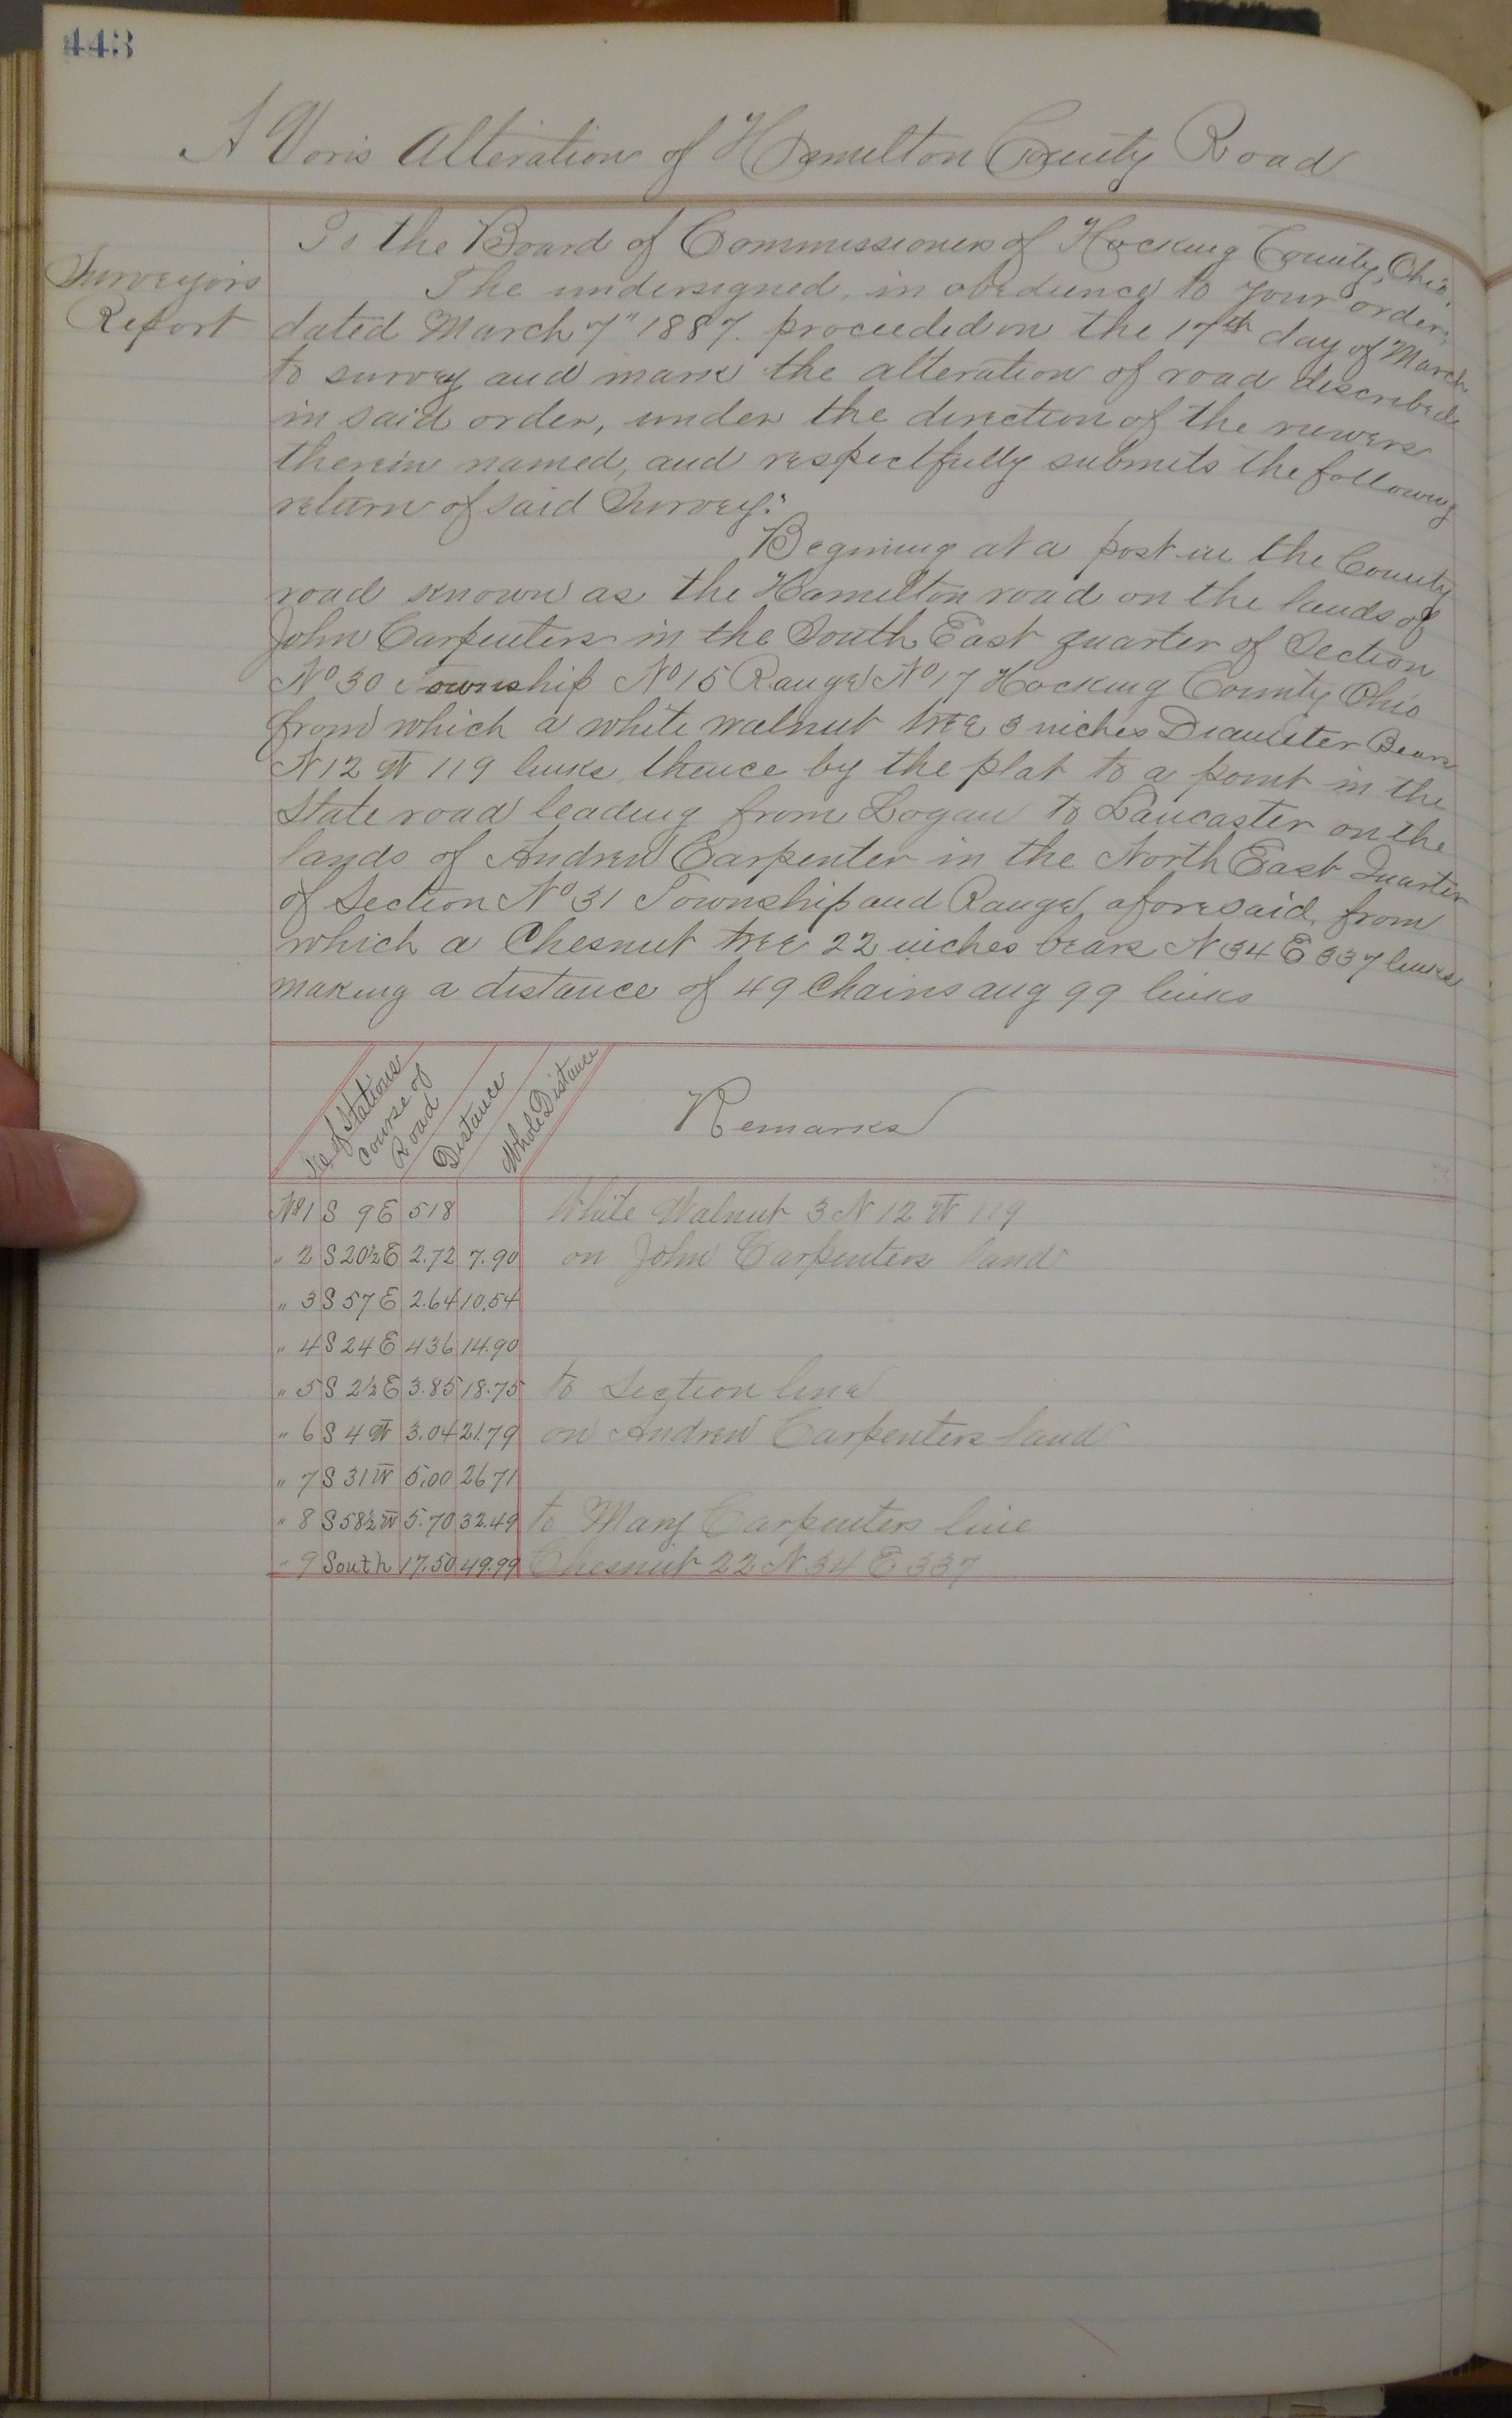 443
A Voris Alteration of Hamilton County Road
Surveyors
Report
To the Board of Commissioners of Hocking County, Ohio.
The undersigned, in obedience to your order,
dated March 7" 1887. proceeded on the 17th day of March
to survey and mark the alteration of road described
in said order, under the direction of the viewers
therein named, and respectfully submits the following
return of said Survey:
Begining at a post in the County
road known as the Hamilton road on the lands of
John Carpenters in the South East quarter of Section
No 30 Township No 15 Range No 17 Hocking County Ohio
from which a white walnut tree 3 inches Diameter Bears
N 12 W 119 links, thence by the plat to a point in the
State road leading from Logan to Lancaster on the
lands of Andrew Carpenter in the North East Quarter
of Section No 31 Township and Range aforesaid, from
which a Chesnut tree 22 inches bears N 34 E 337 links
making a distance of 49 Chains aug 99 links
No of Stations Course of Road Distance Whole Distance Remarks
No 1 S 9 E 518 White Walnut 3 N 12 W 119
" 2 S 20½ E 2.72 7.90 on John Carpenters land
" 3 S 57 E 2.64 10.54
" 4 S 24 E 436 14.90
" 5 S 2½ E 3.85 18.75 to Section line
" 6 S 4 W 3.04 21.79 on Andrew Carpenters land
" 7 S 31 W 5.00 26 71
" 8 S 58½ W 5.70 32.49 to Mary Carpenters line
" 9 South 17.50 49.99 Chesnut 22 N 34 E 337